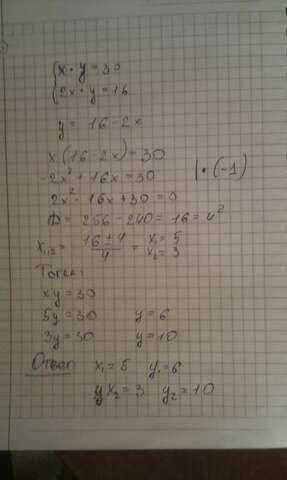 { x · y = 30
{ 2x · y = 16
y = 16 - 2x
x (16 - 2x) = 30
-2x² + 16x = 30 | · (-1)
2x² - 16x + 30 = 0
D = 256 - 240 = 16 = 4²
x₁,₂ = (16 ± 4)/4 = x₁ = 5
x₂ = 3
Тогда:
xy = 30
5y = 30 y = 6
3y = 30 y = 10
Ответ: x₁ = 5 y₁ = 6
x₂ = 3 y₂ = 10